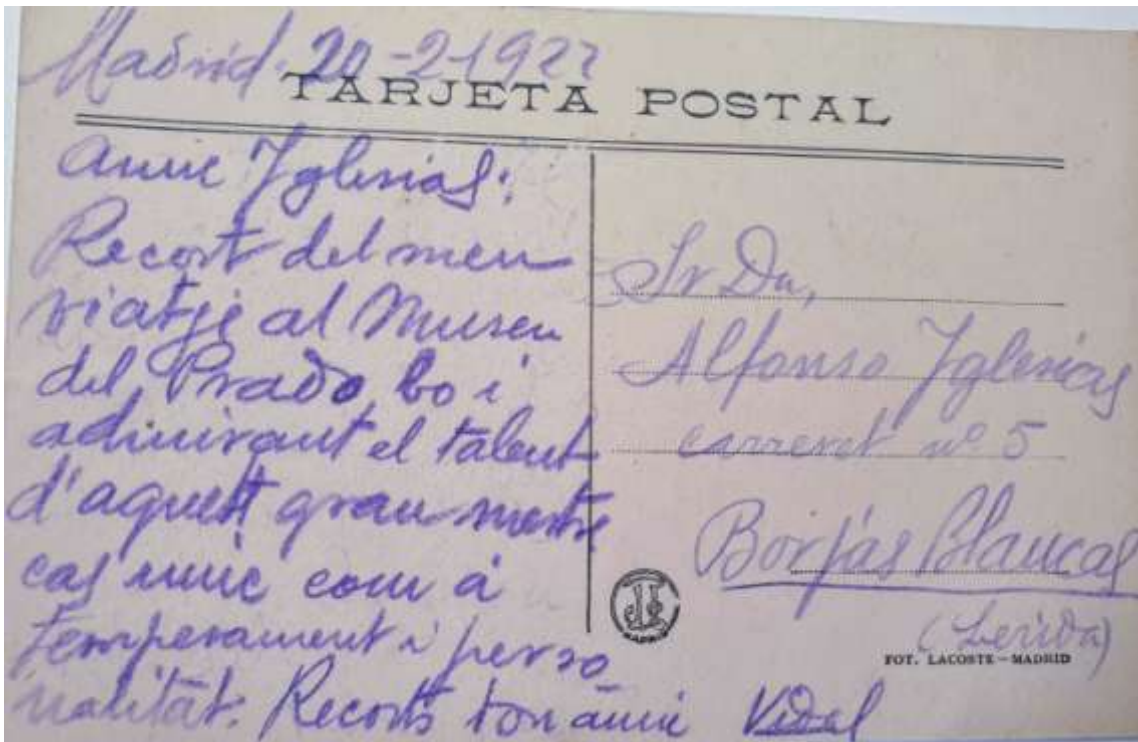 Madrid. 20-2-1922
TARJETA POSTAL
Amic Yglesias:
Recort del meu
viatje al Museu
del Prado, bo i
admirant el talent
d'aquest gran mestre
cas unic com á
temperament i perso
nalitat. Recorts ton amic Vidal
Sr Dn,
Alfonso Yglesias
carreret nº 5
Borjas Blancas
(Lerida)
FOT. LACOSTE-MADRID